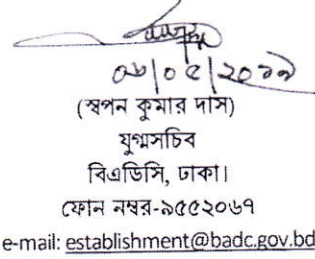 ০৮|০৫|২০১৯
(স্বপন কুমার দাস)
যুগ্মসচিব
বিএডিসি, ঢাকা।
ফোন নম্বর-৯৫৫২০৬৭
e-mail: establishment@badc.gov.bd